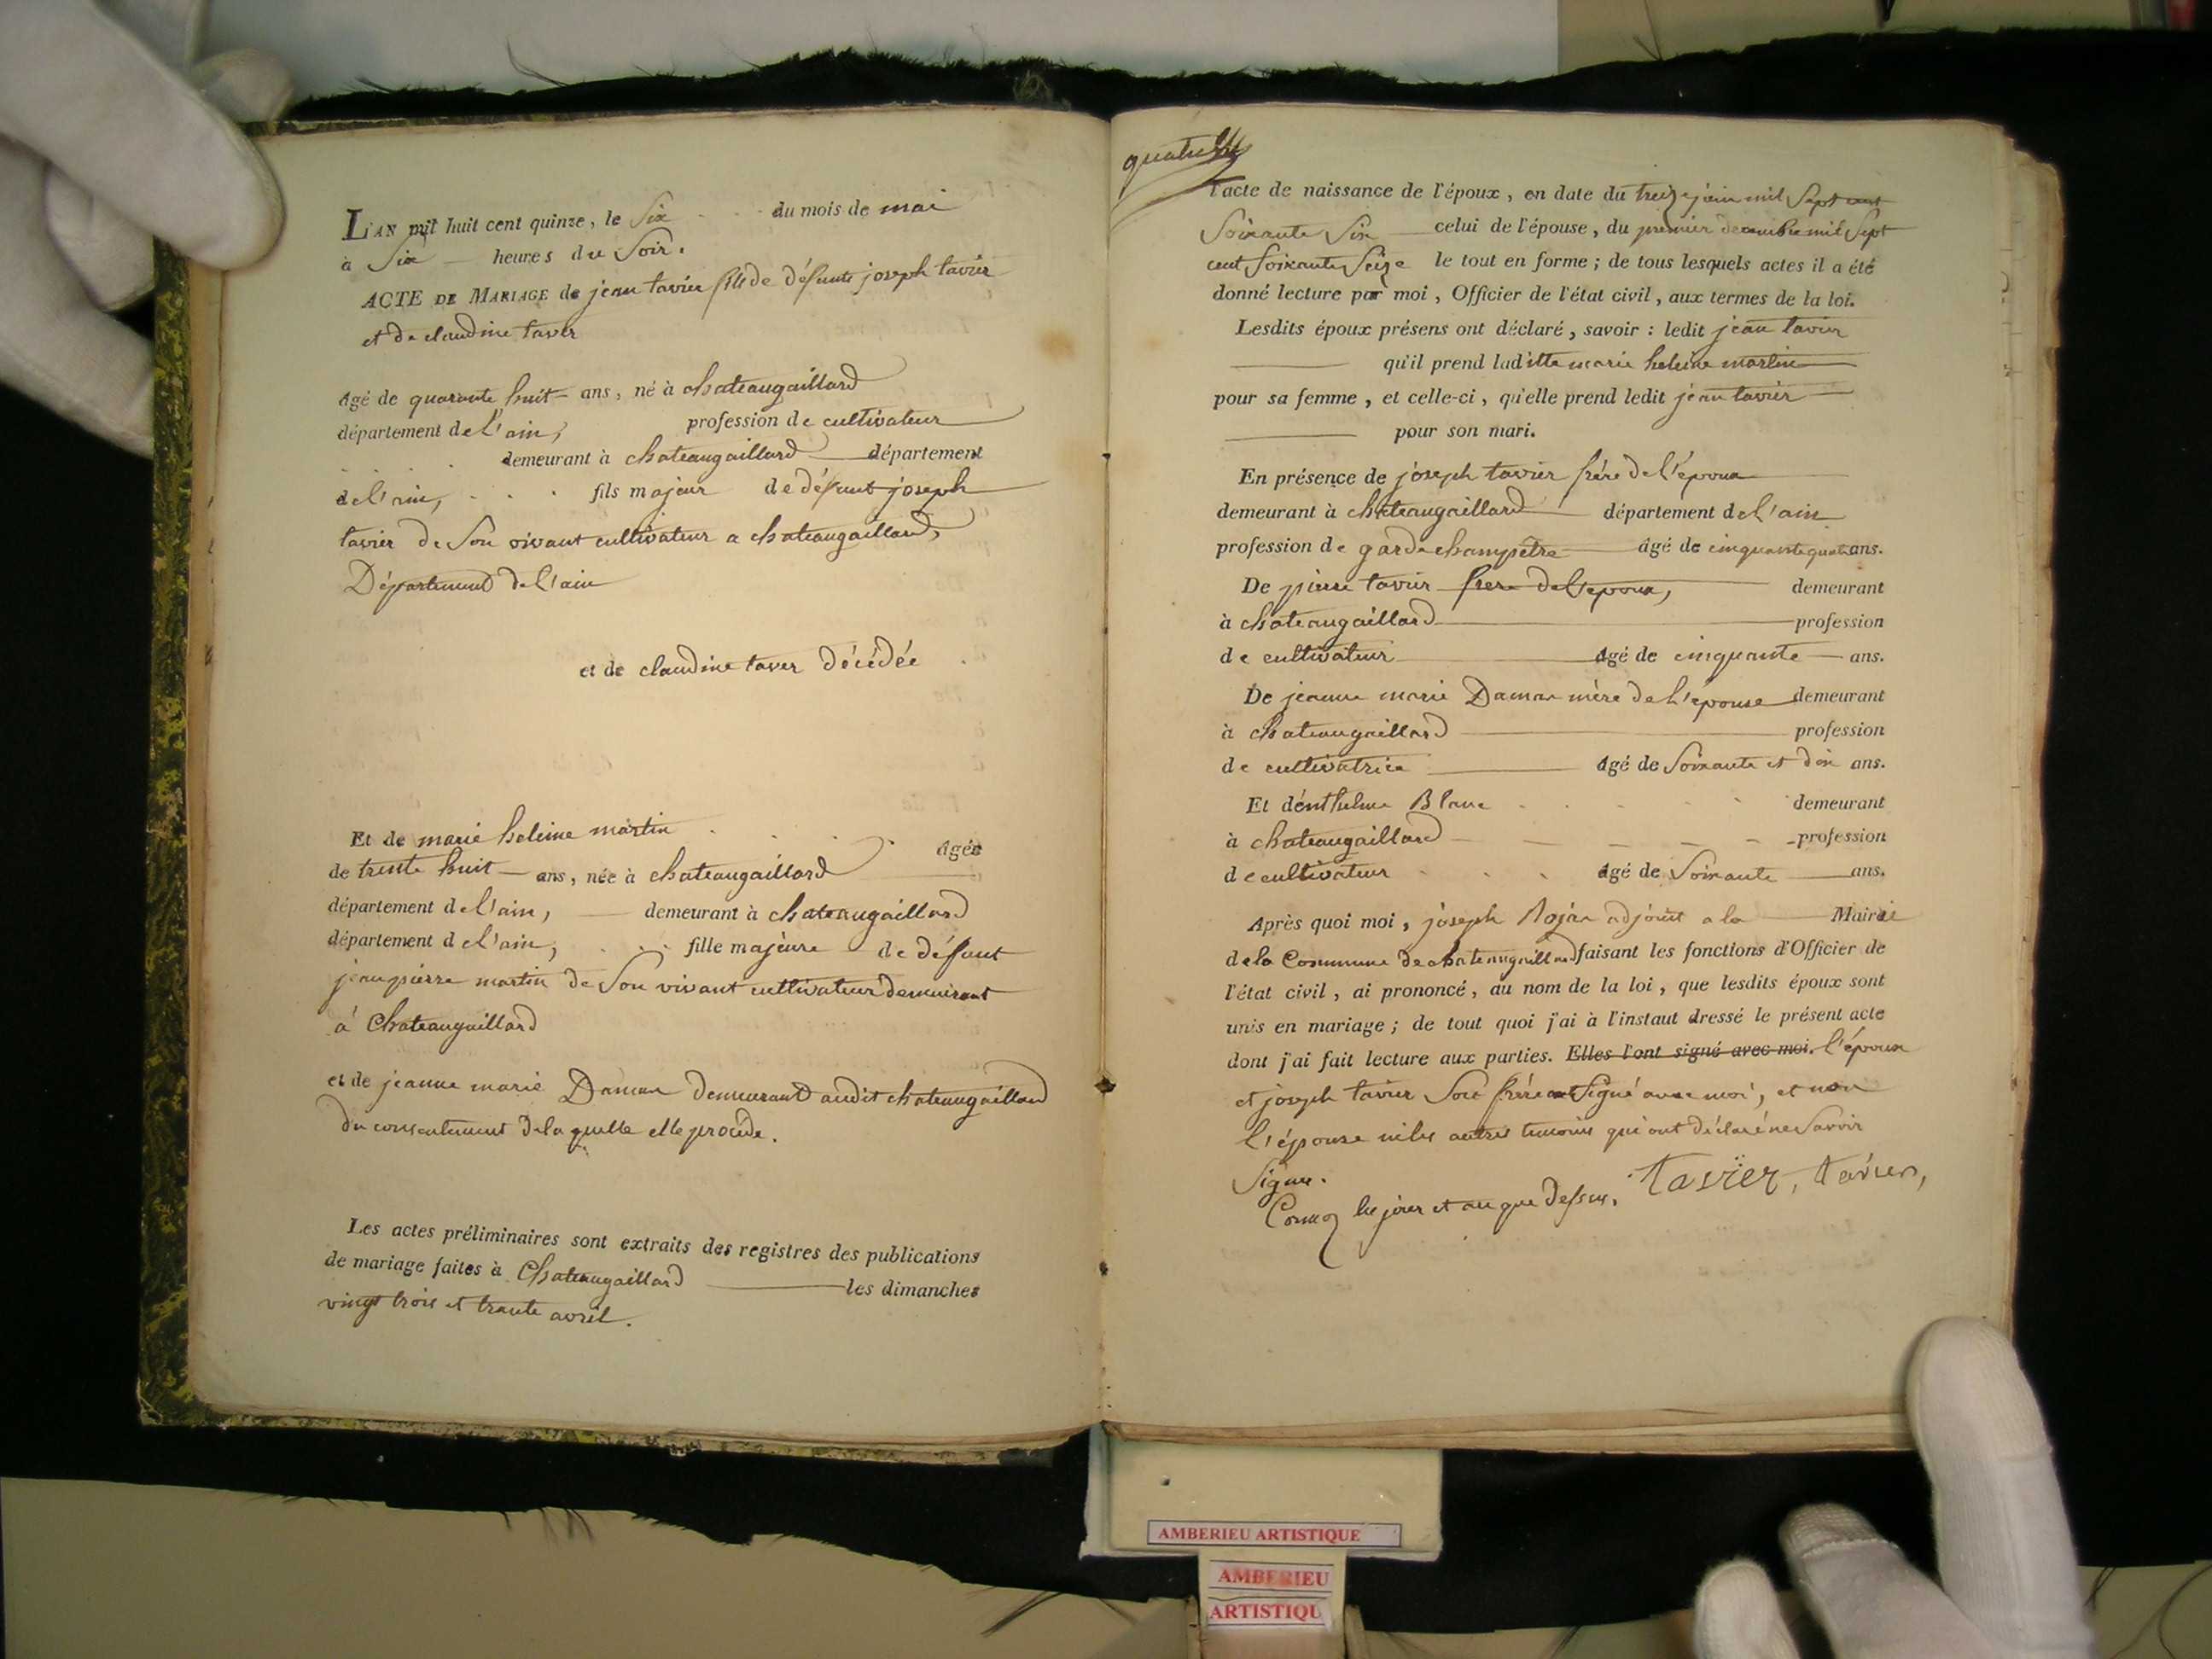 L'AN mil huit cent quinze, le Six du mois de mai
à Six heures du Soir.
ACTE DE MARIAGE de jean tavier fils de défunts joseph tavier
et de claudine taver
âgé de quarante huit ans, né à chateaugaillard
département de l'ain, profession de cultivateur
demeurant à chateaugaillard département
de l'ain, fils majeur de défunt joseph
tavier de Son vivant cultivateur a chateaugaillard,
Département de l'ain
et de claudine taver décédée
Et de marie heleine martin âgée
de trente huit ans, née à chateaugaillard
département de l'ain, demeurant à chateaugaillard
département de l'ain, fille majeure de défunt
jeanpierre martin de Son vivant cultivateur demeurant
à Chateaugaillard
et de jeanne marie Daman demeurant audit chateaugaillard
du consentement de la quelle elle procède.
Les actes préliminaires sont extraits des registres des publications
de mariage faites à Chateaugaillard les dimanches
vingt trois et trante avril.
l'acte de naissance de l'époux, en date du treize juin mil Sept cent
Soixante Six celui de l'épouse, du premier decembre mil Sept
cent Soixante Seize le tout en forme ; de tous lesquels actes il a été
donné lecture par moi, Officier de l'état civil, aux termes de la loi.
Lesdits époux présens ont déclaré, savoir : ledit jean tavier
qu'il prend laditte marie heleine martin
pour sa femme, et celle-ci, qu'elle prend ledit jean tavier
pour son mari.
En présence de joseph tavier frére de l'époux
demeurant à chateaugaillard département de l'ain
profession de garde champêtre âgé de cinquante quatre ans.
De pierre tavier frere de l'epoux, demeurant
à chateaugaillard profession
de cultivateur âgé de cinquante ans.
De jeanne marie Daman mère de l'épouse demeurant
à chateaugaillard profession
de cultivatrice âgé de Soixante et dix ans.
Et d'enthelme Blanc demeurant
à chateaugaillard profession
de cultivateur âgé de Soixante ans.
Après quoi moi, joseph adjoint a la Mairie
de la Commune de chateaugaillard faisant les fonctions d'Officier de
l'état civil, ai prononcé, au nom de la loi, que lesdits époux sont
unis en mariage ; de tout quoi j'ai à l'instant dressé le présent acte
dont j'ai fait lecture aux parties. Elles l'ont signé avec moi. l'époux
et joseph tavier Son frére ont Signé avec moi, et non
l'épouse ni les autres temoins qui ont déclaré ne Savoir
Signer.
les jour et an que dessus. tavier, tavier,
AMBERIEU ARTISTIQUE
AMBERIEU
ARTISTIQU